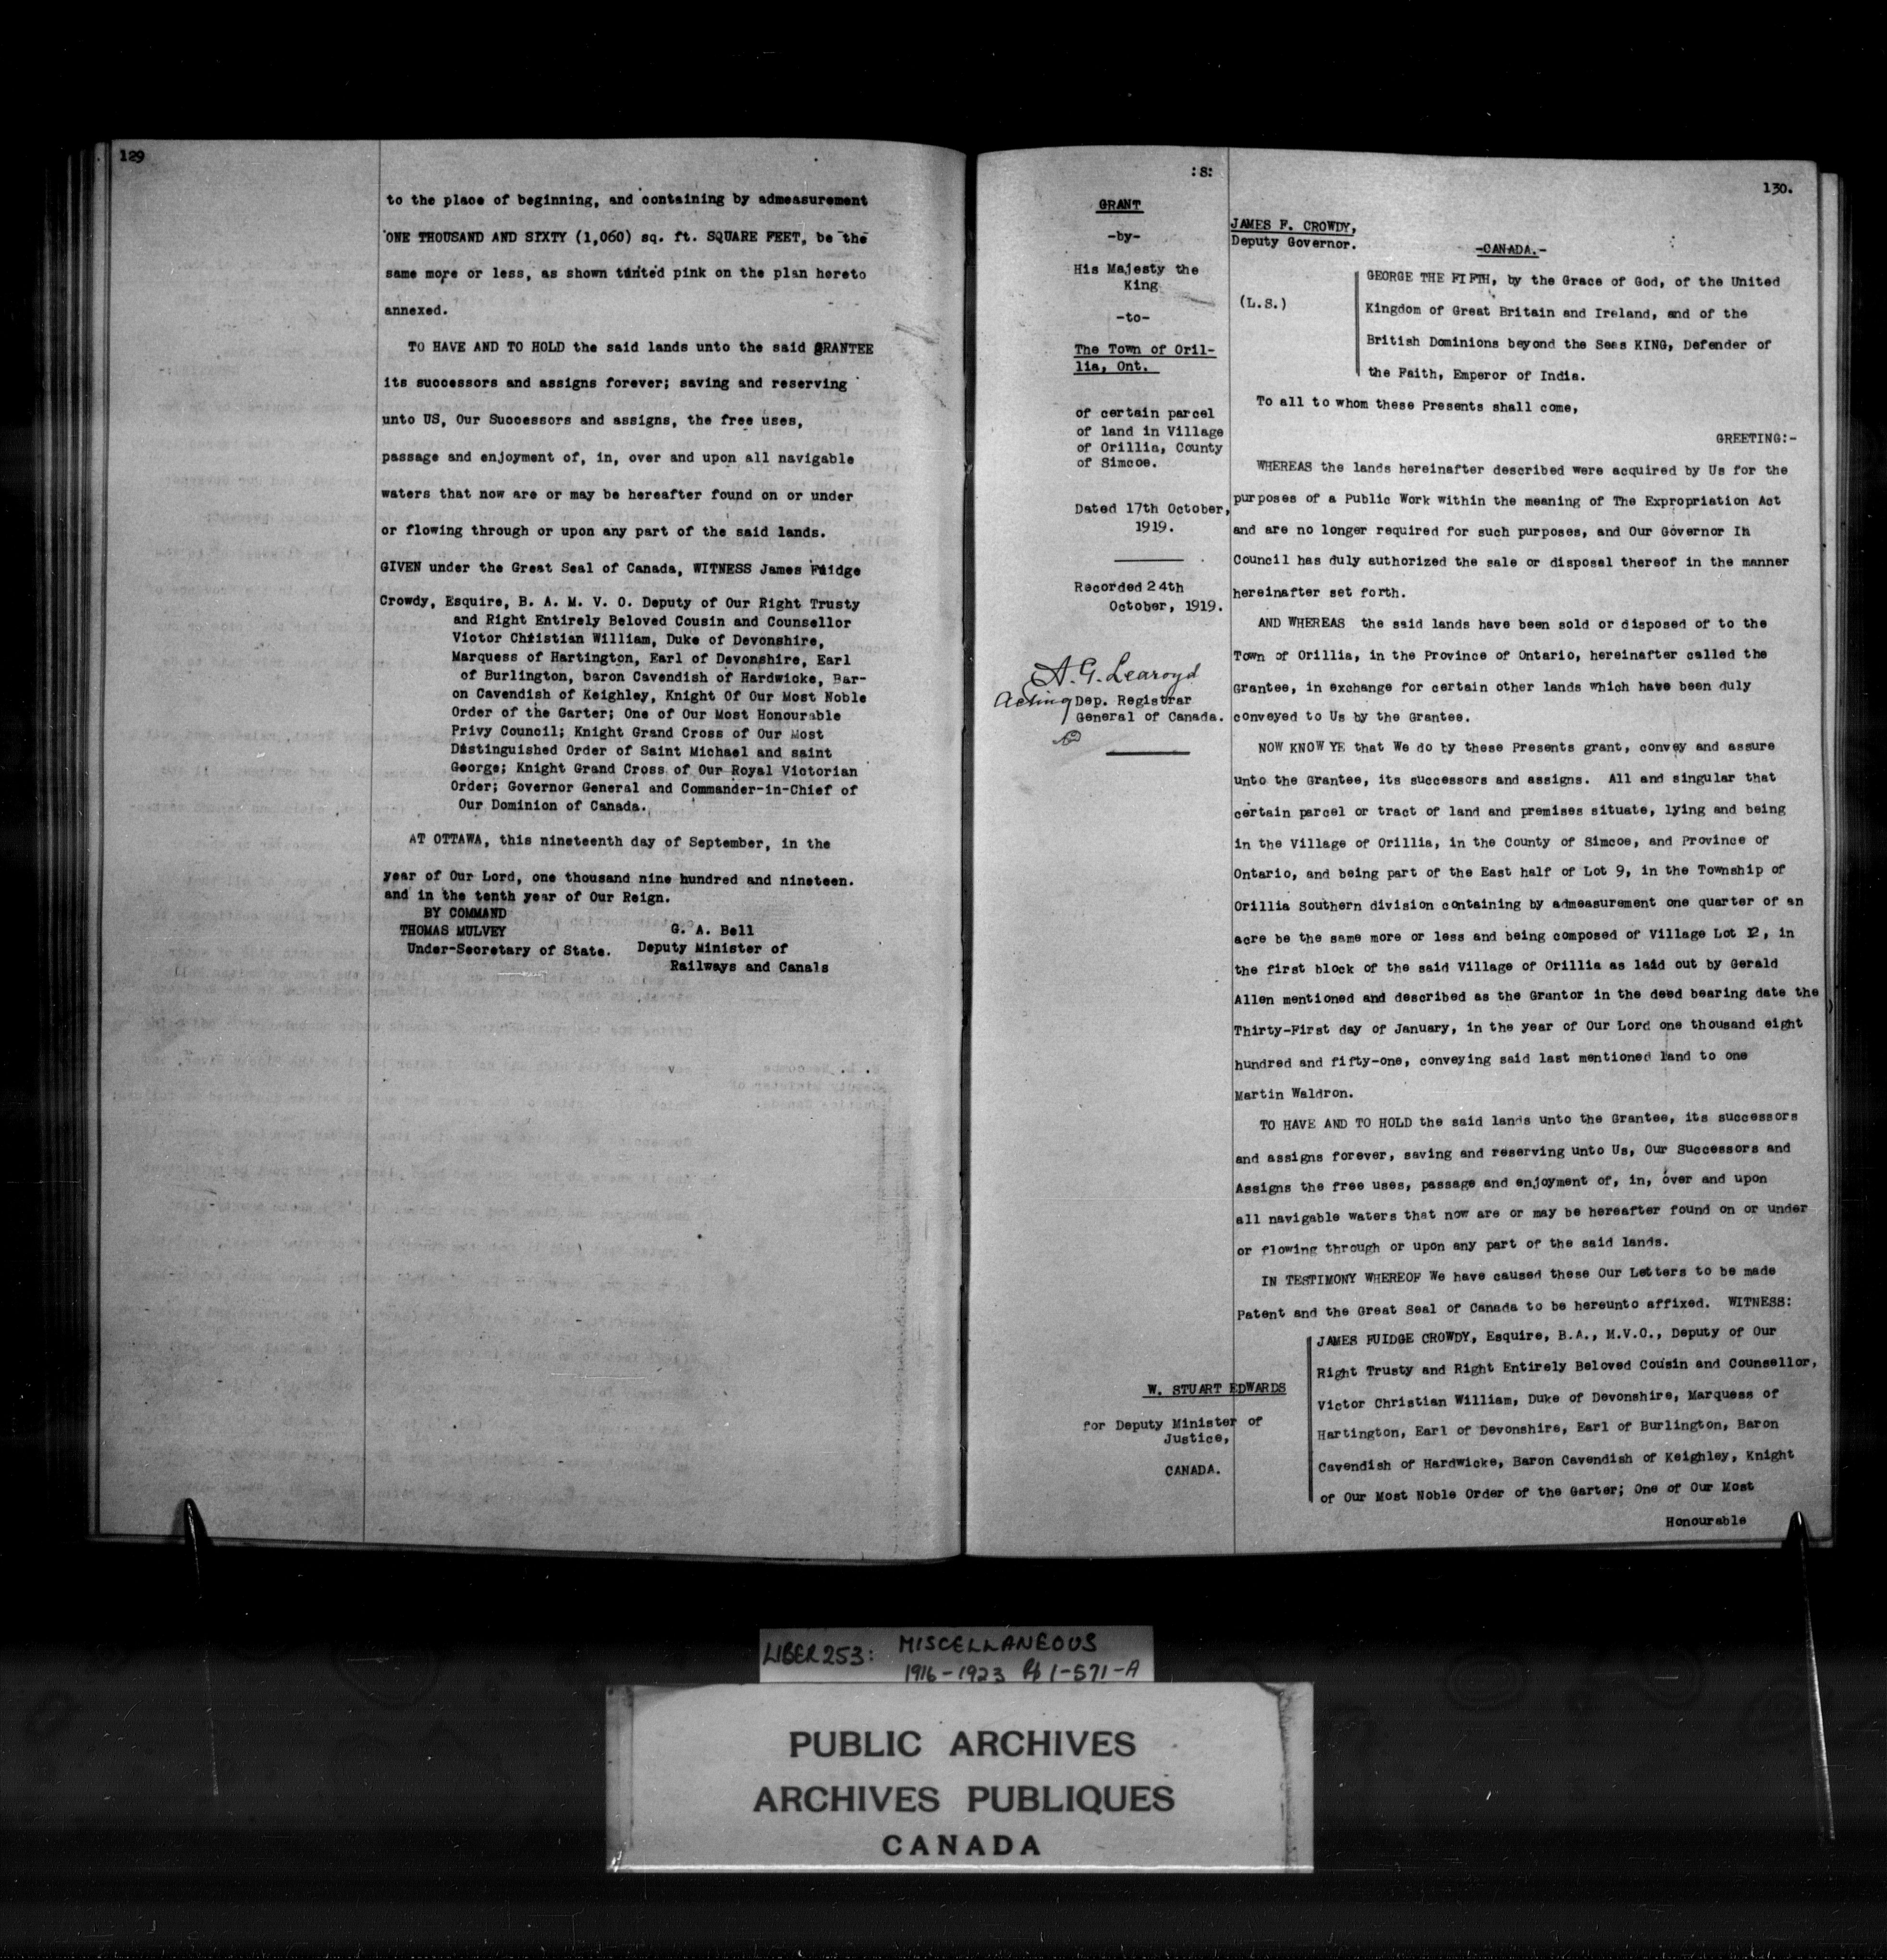 129
to the place of beginning, and containing by admeasurement
ONE THOUSAND AND SIXTY (1,060) sq. ft. SQUARE FEET, be the
same more or less, as shown tinted pink on the plan hereto
annexed.
TO HAVE AND TO HOLD the said lands unto the said GRANTEE
its successors and assigns forever; saving and reserving
unto US, Our Successors and assigns, the free uses,
passage and enjoyment of, in, over and upon all navigable
waters that now are or may be hereafter found on or under
or flowing through or upon any part of the said lands.
GIVEN under the Great Seal of Canada, WITNESS James Fuidge
Crowdy, Esquire, B. A. M. V. O. Deputy of Our Right Trusty
and Right Entirely Beloved Cousin and Counsellor
Victor Christian William, Duke of Devonshire,
Marquess of Hartington, Earl of Devonshire, Earl
of Burlington, baron Cavendish of Hardwicke, Bar-
on Cavendish of Keighley, Knight Of Our Most Noble
Order of the Garter; One of Our Most Honourable
Privy Council; Knight Grand Cross of Our Most
Distinguished Order of Saint Michael and saint
George; Knight Grand Cross of Our Royal Victorian
Order; Governor General and Commander-in-Chief of
Our Dominion of Canada.
AT OTTAWA, this nineteenth day of September, in the
year of Our Lord, one thousand nine hundred and nineteen.
and in the tenth year of Our Reign.
BY COMMAND
THOMAS MULVEY
Under-Secretary of State.
G. A. Bell
Deputy Minister of
Railways and Canals
:S:
130.
GRANT
-by-
His Majesty the
King
-to-
The Town of Oril-
lia, Ont.
of certain parcel
of land in Village
of Orillia, County
of Simcoe.
Dated 17th October,
1919.
Recorded 24th
October, 1919.
A. G. Learoyd
Acting Dep. Registrar
General of Canada.
JAMES F. CROWDY,
Deputy Governor.
-CANADA.-
(L.S.)
GEORGE THE FIFTH, by the Grace of God, of the United
Kingdom of Great Britain and Ireland, and of the
British Dominions beyond the Seas KING, Defender of
the Faith, Emperor of India.
To all to whom these Presents shall come,
GREETING:-
WHEREAS the lands hereinafter described were acquired by Us for the
purposes of a Public Work within the meaning of The Expropriation Act
and are no longer required for such purposes, and Our Governor In
Council has duly authorized the sale or disposal thereof in the manner
hereinafter set forth.
AND WHEREAS the said lands have been sold or disposed of to the
Town of Orillia, in the Province of Ontario, hereinafter called the
Grantee, in exchange for certain other lands which have been duly
conveyed to Us by the Grantee.
NOW KNOW YE that We do by these Presents grant, convey and assure
unto the Grantee, its successors and assigns. All and singular that
certain parcel or tract of land and premises situate, lying and being
in the Village of Orillia, in the County of Simcoe, and Province of
Ontario, and being part of the East half of Lot 9, in the Township of
Orillia Southern division containing by admeasurement one quarter of an
acre be the same more or less and being composed of Village Lot 12, in
the first block of the said Village of Orillia as laid out by Gerald
Allen mentioned and described as the Grantor in the deed bearing date the
Thirty-First day of January, in the year of Our Lord one thousand eight
hundred and fifty-one, conveying said last mentioned land to one
Martin Waldron.
TO HAVE AND TO HOLD the said lands unto the Grantee, its successors
and assigns forever, saving and reserving unto Us, Our Successors and
Assigns the free uses, passage and enjoyment of, in, over and upon
all navigable waters that now are or may be hereafter found on or under
or flowing through or upon any part of the said lands.
IN TESTIMONY WHEREOF We have caused these Our Letters to be made
Patent and the Great Seal of Canada to be hereunto affixed. WITNESS:
JAMES FUIDGE CROWDY, Esquire, B.A., M.V.O., Deputy of Our
Right Trusty and Right Entirely Beloved Cousin and Counsellor,
Victor Christian William, Duke of Devonshire, Marquess of
Hartington, Earl of Devonshire, Earl of Burlington, Baron
Cavendish of Hardwicke, Baron Cavendish of Keighley, Knight
of Our Most Noble Order of the Garter; One of Our Most
Honourable
W. STUART EDWARDS
for Deputy Minister of
Justice,
CANADA.
LIBER 253: MISCELLANEOUS
1916-1923 Pp 1-571-A
PUBLIC ARCHIVES
ARCHIVES PUBLIQUES
CANADA